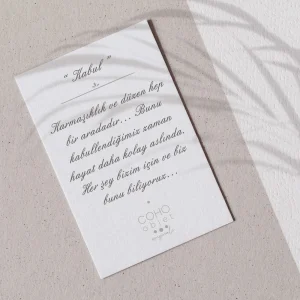 “ Kabul ”
Karmaşıklık ve düzen hep
bir aradadır... Bunu
kabullendiğimiz zaman
hayat daha kolay aslında.
Her şey bizim için ve biz
bunu biliyoruz...
COHO
objet